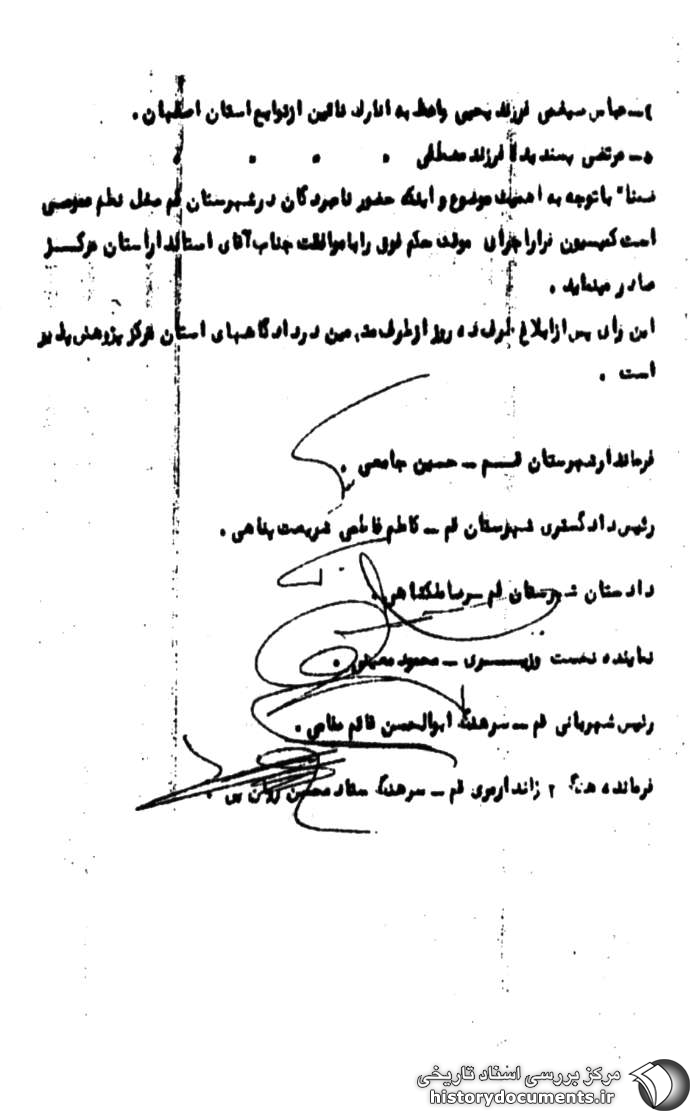 عباس فرزند یحیی واعظ به انارک نائین از توابع استان اصفهان .
۵ ــ مرتضی پسندیده فرزند مصطفی " " " "
ضمنا" با توجه به اهمیت موضوع و اینکه حضور نامبردگان در شهرستان قم مخل نظم عمومی
است کمیسیون قرار اجرای موقت حکم فوق را با موافقت جناب آقای استاندار استان مرکزی
صادر مینماید .
این رأی پس از ابلاغ ظرف ده روز از طرف در دادگاههای استان مرکز پژوهش پذیر
است .
فرماندار شهرستان قم ــ حسین جامعی .
رئیس دادگستری شهرستان قم ــ کاظم فاطمی شریعت پناهی .
دادستان شهرستان قم ــ
نماینده نخست وزیری ــ محمود
رئیس شهربانی قم ــ سرهنگ ابوالحسن قائم مقامی .
فرمانده هنگ ۲ ژاندارمری قم ــ سرهنگ ستاد محسن
مرکز بررسی اسناد تاریخی
historydocuments.ir